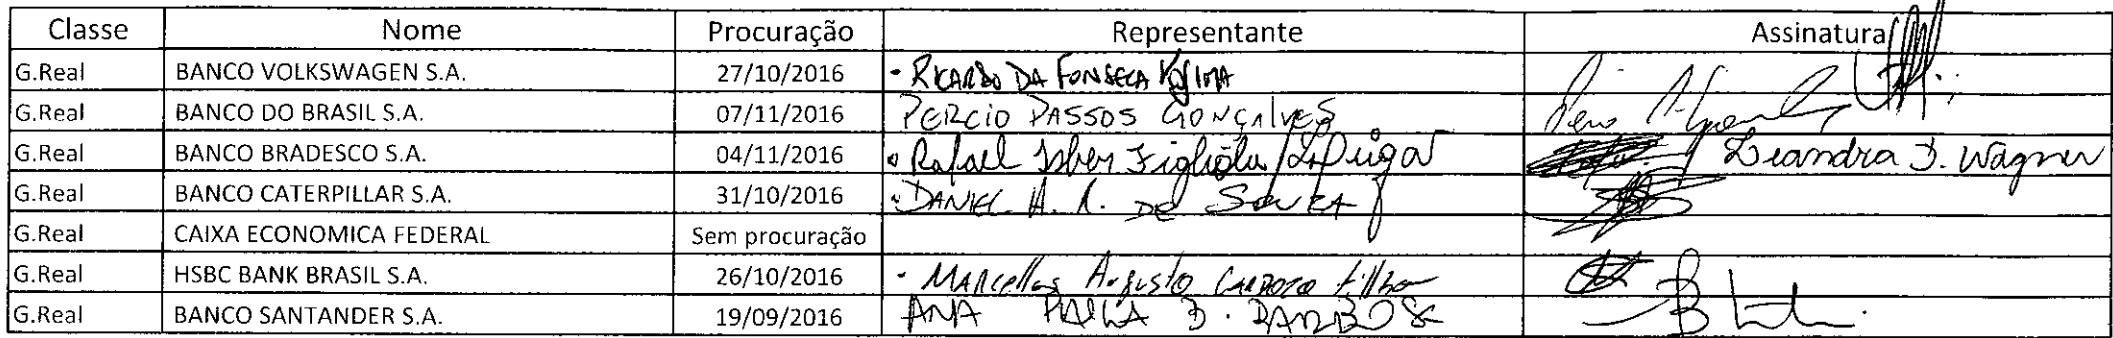 Classe Nome Procuração Representante Assinatura
G.Real BANCO VOLKSWAGEN S.A. 27/10/2016 - RICARDO DA FONSECA
G.Real BANCO DO BRASIL S.A. 07/11/2016 PERCIO PASSOS GONÇALVES
G.Real BANCO BRADESCO S.A. 04/11/2016 Rafael Figliolia Leandra J. Wagner
G.Real BANCO CATERPILLAR S.A. 31/10/2016 DANIEL H. A. DE SOUZA
G.Real CAIXA ECONOMICA FEDERAL Sem procuração
G.Real HSBC BANK BRASIL S.A. 26/10/2016 - Marcellus Augusto Cardoso Filho
G.Real BANCO SANTANDER S.A. 19/09/2016 ANA PAULA B. BARBOSA